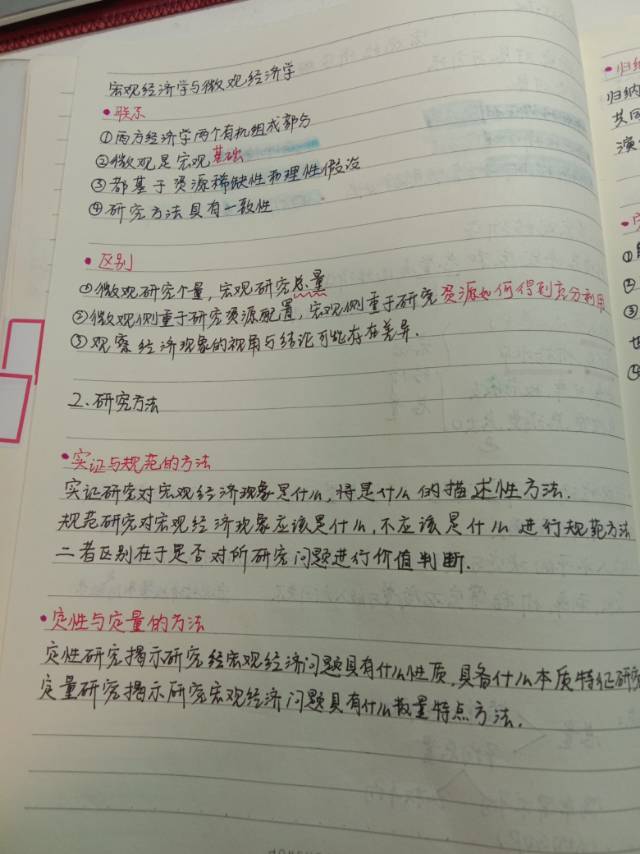 宏观经济学与微观经济学
•联系
①西方经济学两个有机组成部分
②微观是宏观基础
③都基于资源稀缺性和理性假设
④研究方法具有一致性
•区别
①微观研究个量，宏观研究总量
②微观侧重于研究资源配置，宏观侧重于研究资源如何得到充分利用
③观察经济现象的视角与结论可能存在差异.
2.研究方法
•实证与规范的方法
实证研究对宏观经济现象是什么,将是什么的描述性方法.
规范研究对宏观经济现象应该是什么,不应该是什么进行规范方法
二者区别在于是否对所研究问题进行价值判断.
•定性与定量的方法
定性研究揭示研究经宏观经济问题具有什么性质,具备什么本质特征研究
定量研究揭示所究宏观经济问题具有什么数量特点方法.
•归纳
归纳
共同
演
①
②
③
④